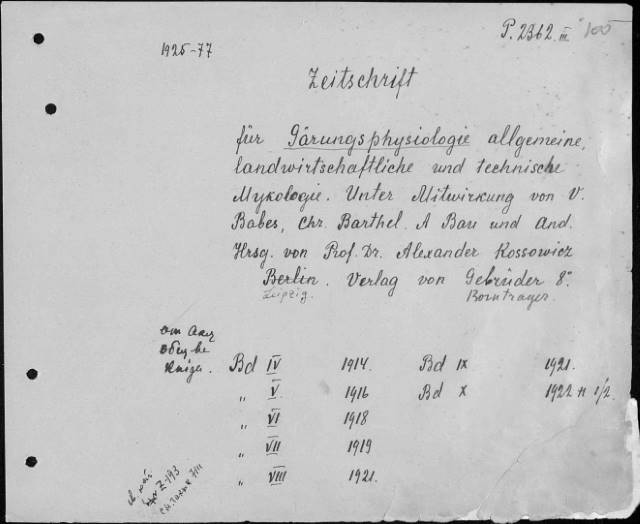 P. 2362 III 100
1925-77
Zeitschrift
für Gärungsphysiologie allgemeine,
landwirtschaftliche und technische
Mykologie. Unter Mitwirkung von V.
Babes, Chr. Barthel. A Bau und And.
Hrsg. von Prof. Dr. Alexander Kossowicz
Berlin. Verlag von Gebrüder 8°.
Leipzig. Borntrager.
Bd IV 1914. Bd IX 1921.
„ V 1916 Bd X 1922 н 1/2.
„ VI 1918
„ VII 1919
„ VIII 1921.
Z-193